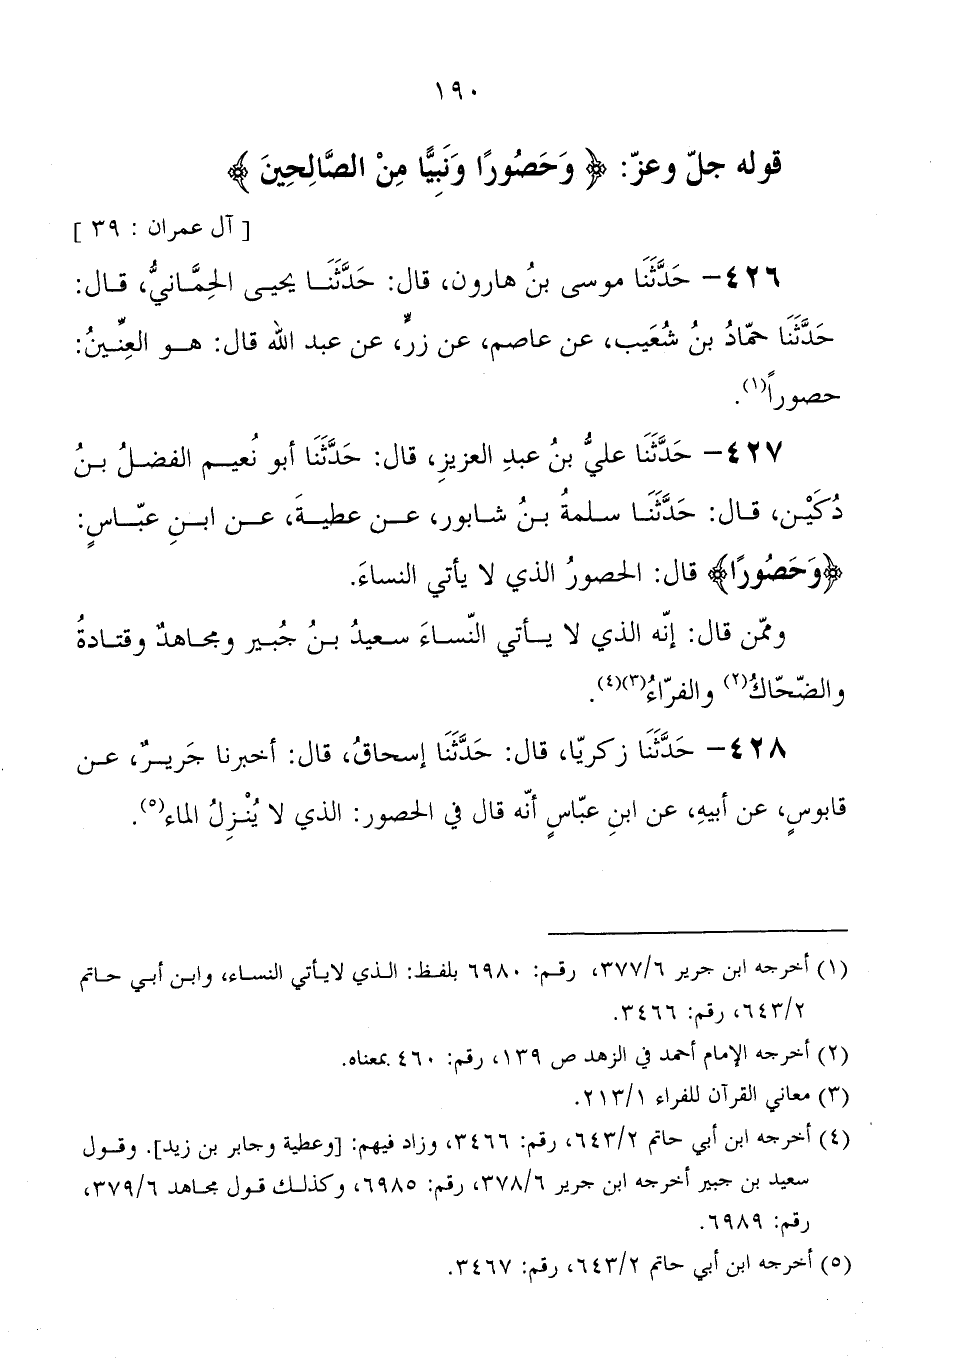 ١٩٠
قوله جلّ وعزّ: ﴿ وَحَصُورًا وَنَبِيًّا مِنْ الصَّالِحِينَ ﴾
[ آل عمران : ٣٩ ]
٤٢٦– حَدَّثَنَا موسى بنُ هارون، قال: حَدَّثَنَا يحيى الحِمَّانيُّ، قال:
حَدَّثَنَا حمّادُ بنُ شُعَيب، عن عاصم، عن زرٍّ، عن عبد الله قال: هو العِنِّينُ:
حصوراً(١).
٤٢٧– حَدَّثَنَا عليُّ بنُ عبدِ العزيزِ، قال: حَدَّثَنَا أبو نُعيم الفضلُ بنُ
دُكَيْن، قال: حَدَّثَنَا سلمةُ بنُ شابور، عن عطيةَ، عن ابنِ عبّاسٍ:
﴿وَحَصُورًا﴾ قال: الحصورُ الذي لا يأتي النساءَ.
وممّن قال: إنّه الذي لا يأتي النّساءَ سعيدُ بنُ جُبير ومجاهدٌ وقتادةُ
والضّحّاكُ(٢) والفرّاءُ(٣)(٤).
٤٢٨– حَدَّثَنَا زكريّا، قال: حَدَّثَنَا إسحاقُ، قال: أخبرنا جَريرٌ، عن
قابوسٍ، عن أبيهِ، عن ابنِ عبّاسٍ أنّه قال في الحصور: الذي لا يُنْزِلُ الماء(٥).
(١) أخرجه ابن جرير ٣٧٧/٦، رقم: ٦٩٨٠ بلفظ: الذي لايأتي النساء، وابن أبي حاتم
٦٤٣/٢، رقم: ٣٤٦٦.
(٢) أخرجه الإمام أحمد في الزهد ص ١٣٩، رقم: ٤٦٠ بمعناه.
(٣) معاني القرآن للفراء ٢١٣/١.
(٤) أخرجه ابن أبي حاتم ٦٤٣/٢، رقم: ٣٤٦٦، وزاد فيهم: [وعطية وجابر بن زيد]. وقول
سعيد بن جبير أخرجه ابن جرير ٣٧٨/٦، رقم: ٦٩٨٥، وكذلك قول مجاهد ٣٧٩/٦،
رقم: ٦٩٨٩.
(٥) أخرجه ابن أبي حاتم ٦٤٣/٢، رقم: ٣٤٦٧.